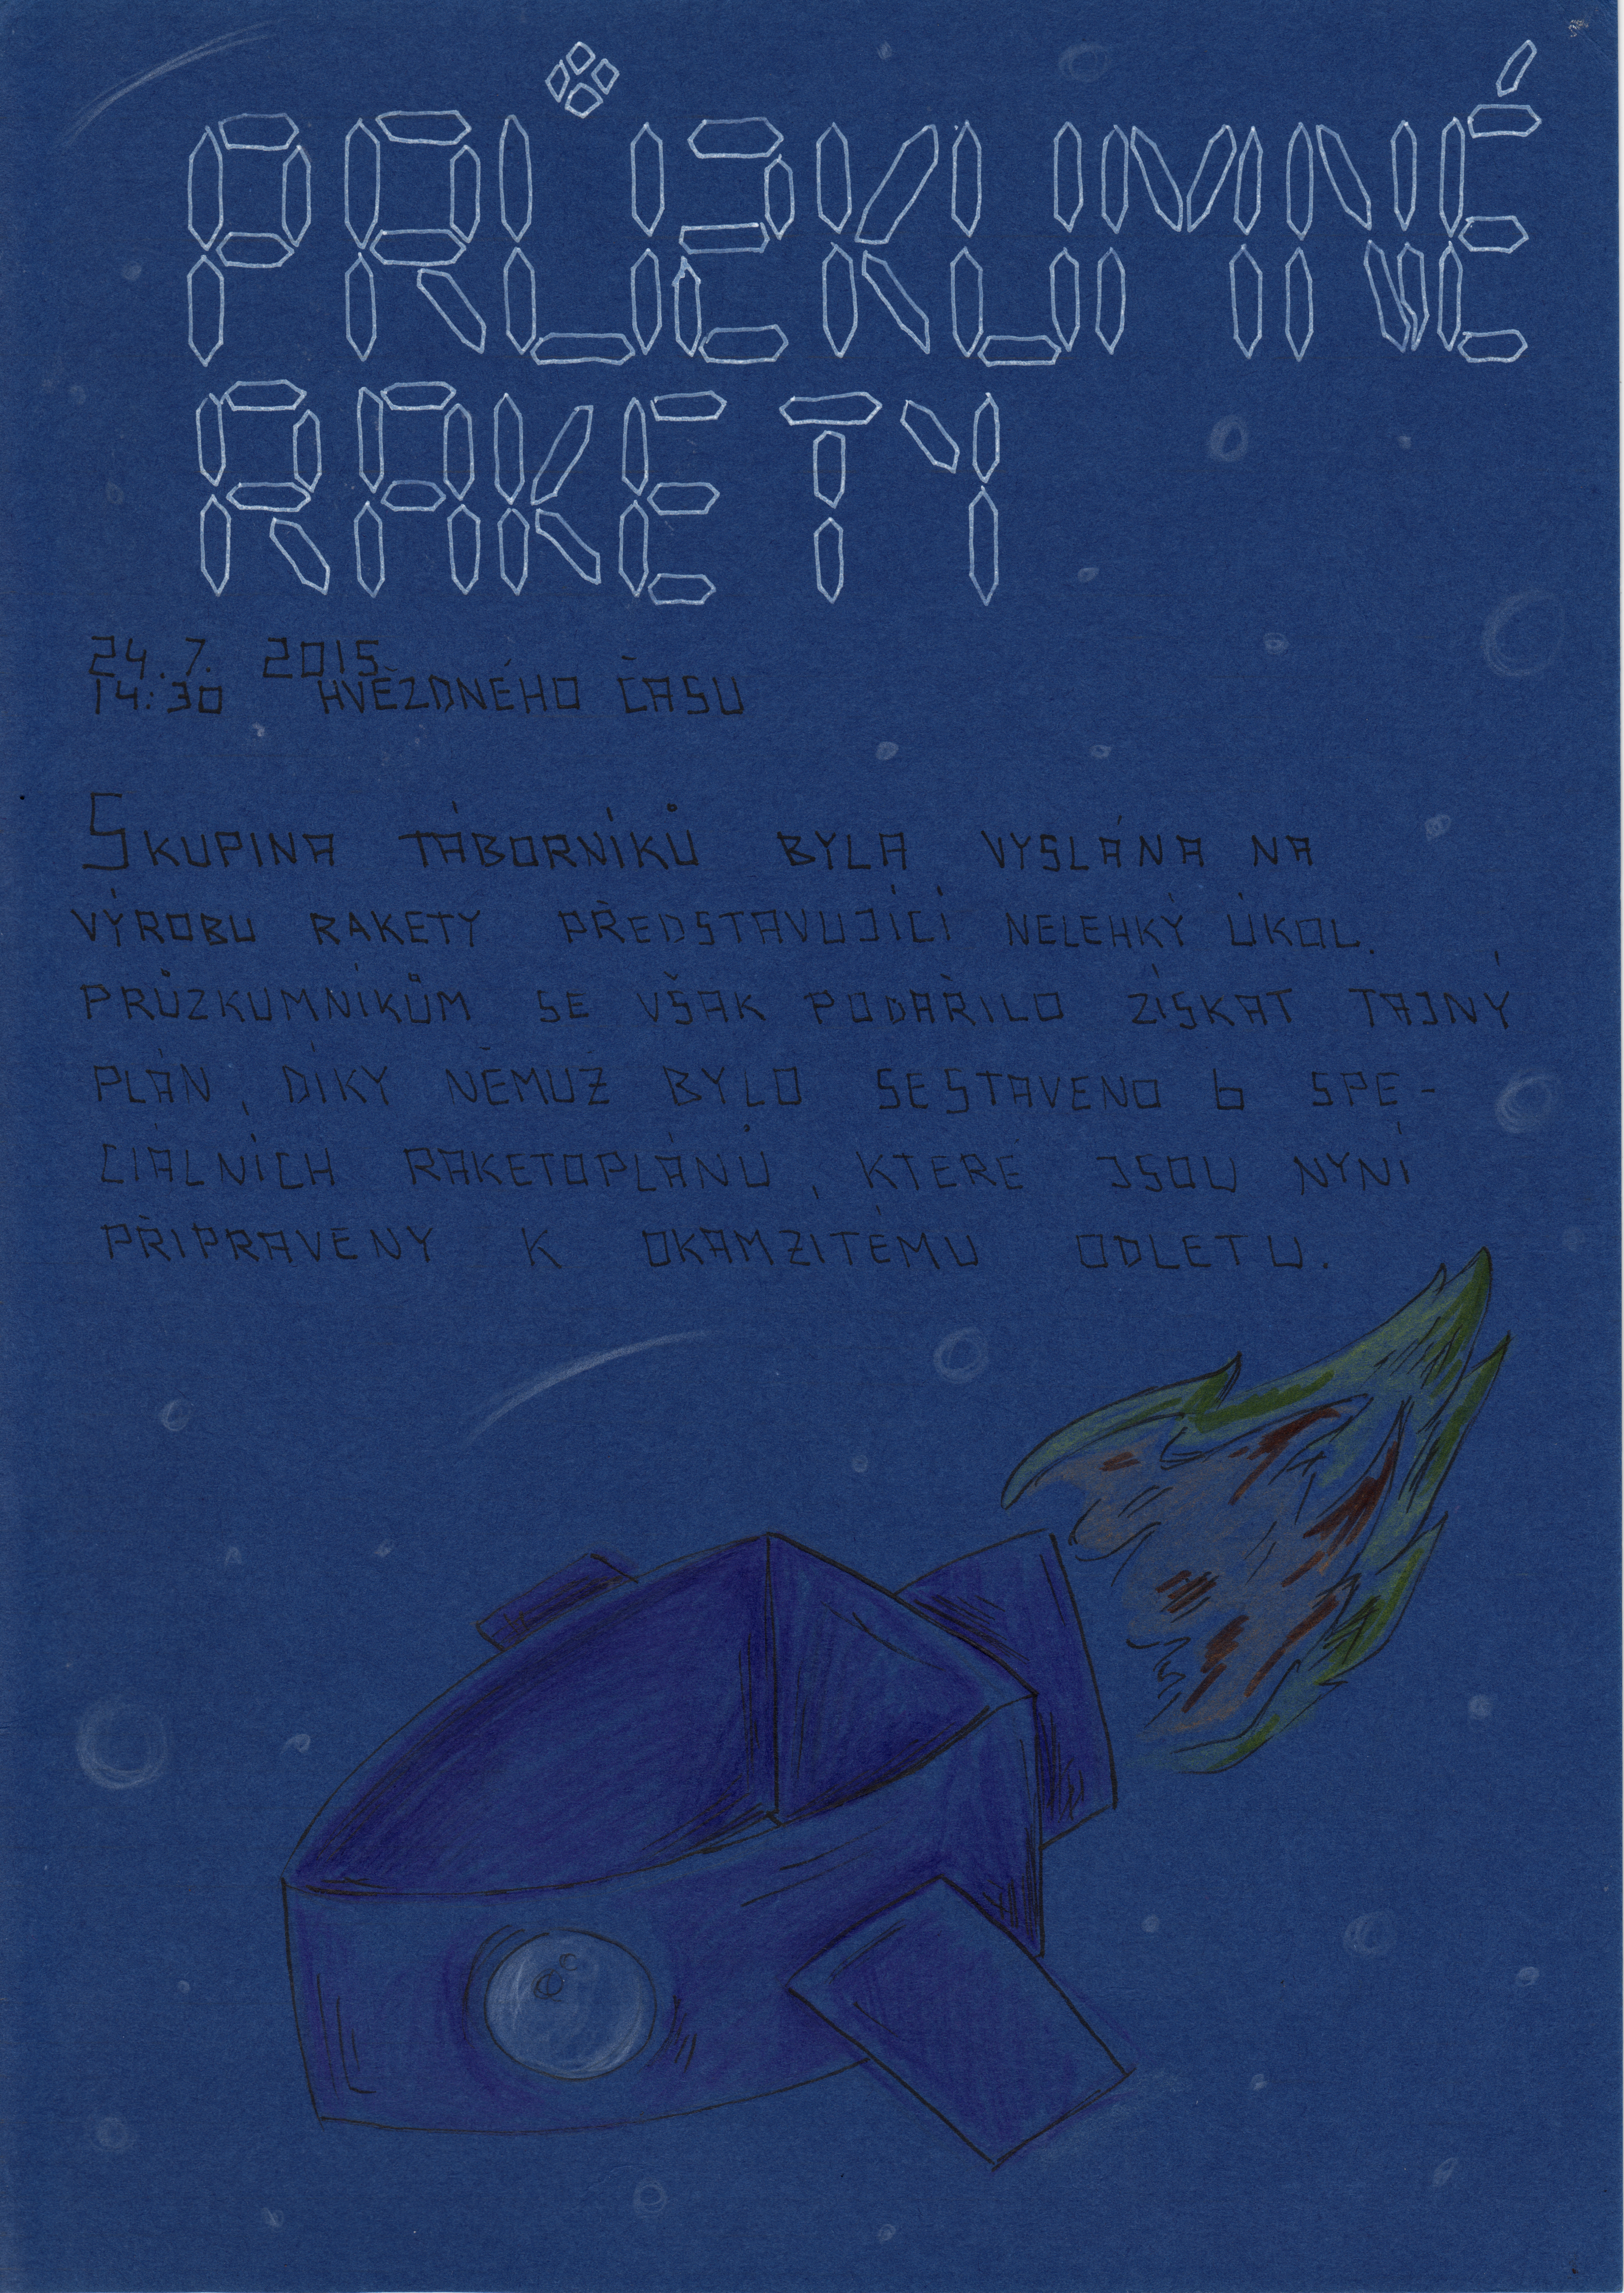 PRŮZKUMNÉ
RAKETY
24.7. 2015
14:30 HVĚZDNÉHO ČASU
SKUPINA TÁBORNÍKŮ BYLA VYSLÁNA NA
VÝROBU RAKETY PŘEDSTAVUJÍCÍ NELEHKÝ ÚKOL.
PRŮZKUMNÍKŮM SE VŠAK PODAŘILO ZÍSKAT TAJNÝ
PLÁN, DÍKY NĚMUŽ BYLO SESTAVENO 6 SPE-
CIÁLNÍCH RAKETOPLÁNŮ, KTERÉ JSOU NYNÍ
PŘIPRAVENY K OKAMŽITÉMU ODLETU.